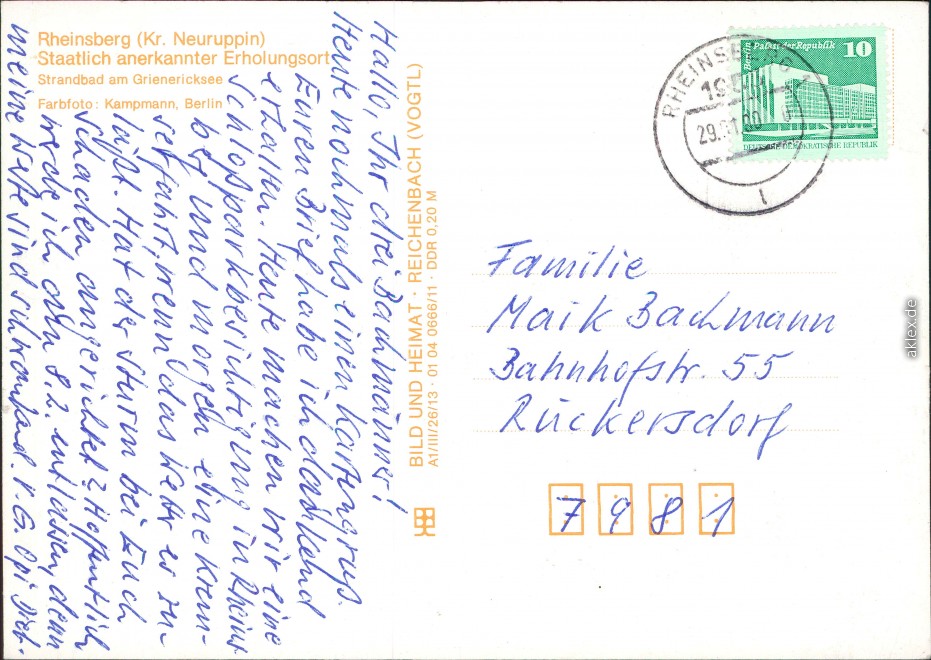 Rheinsberg (Kr. Neuruppin)
Staatlich anerkannter Erholungsort
Strandbad am Grienericksee
Farbfoto: Kampmann, Berlin
Hallo, Ihr drei Bachmänner!
Heute nochmals einen Kartengruß.
Euren Brief habe ich dankend
erhalten. Heute machen wir eine
Schloßparkbesichtigung in Rheins
berg und morgen eine Krem-
serfahrt, wenn das Wetter es zu-
läßt. Hat der Sturm bei Euch
Schaden angerichtet? Hoffentlich
werde ich am 8.2. entlassen, denn
meine Werte sind schwankend. V. G. Opi Diet-
BILD UND HEIMAT · REICHENBACH (VOGTL)
A1/III/26/13 · 01 04 0666/11 · DDR 0,20 M
Berlin Palast der Republik 10
DEUTSCHE DEMOKRATISCHE REPUBLIK
RHEINSBERG 1
1955
29.01.90
l
Familie
Maik Bachmann
Bahnhofstr. 55
Rückersdorf
7981
aklex.de